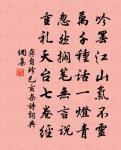 吟罢江山气不灵
万千种话一灯青
忽然搁笔无言说
重礼天台七卷经
龚自珍己亥杂诗词典
网集